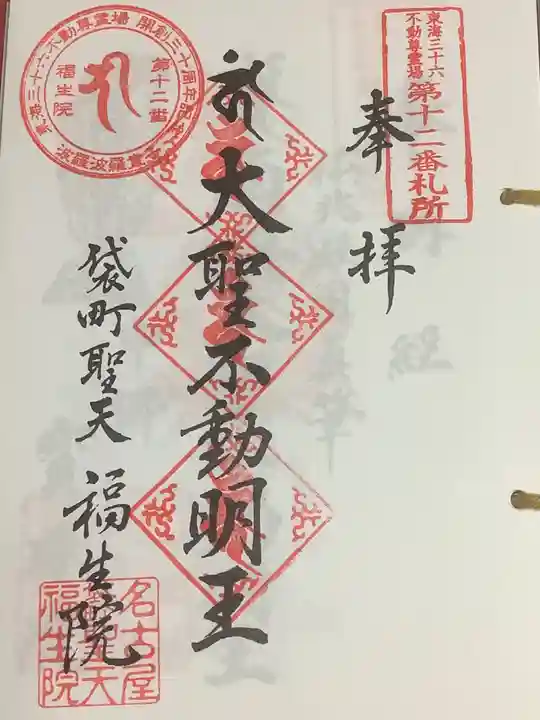 東海三十六
不動尊霊場
第十二番札所
奉拝
大聖不動明王
袋町聖天 福生院
東海三十六不動尊霊場 開創三十周年記念
第十二番
福生院
波羅波羅蜜菩
名古屋
聖天
福生院